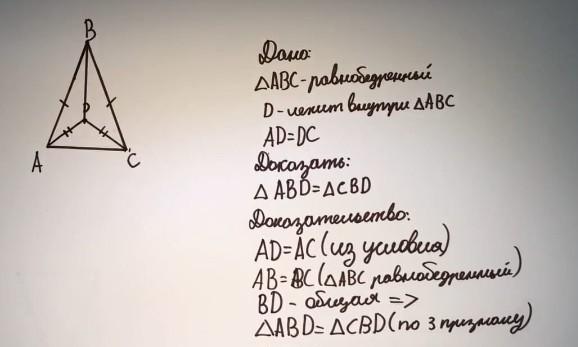 B
D
A
C
Дано:
△ABC-равнобедренный
D-лежит внутри △ABC
AD=DC
Доказать:
△ABD=△CBD
Доказательство:
AD=AC(из условия)
AB=BC(△ABC равнобедренный)
BD-общая =>
△ABD=△CBD(по 3 признаку)